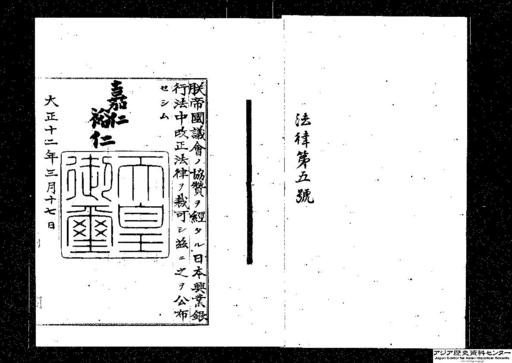 法律第五號
朕帝國議會ノ協贊ヲ經タル日本興業銀
行法中改正法律ヲ裁可シ茲ニ之ヲ公布
セシム
嘉仁
裕仁
天皇
御璽
大正十二年三月十七日
アジア歴史資料センター
Japan Center for Asian Historical Records